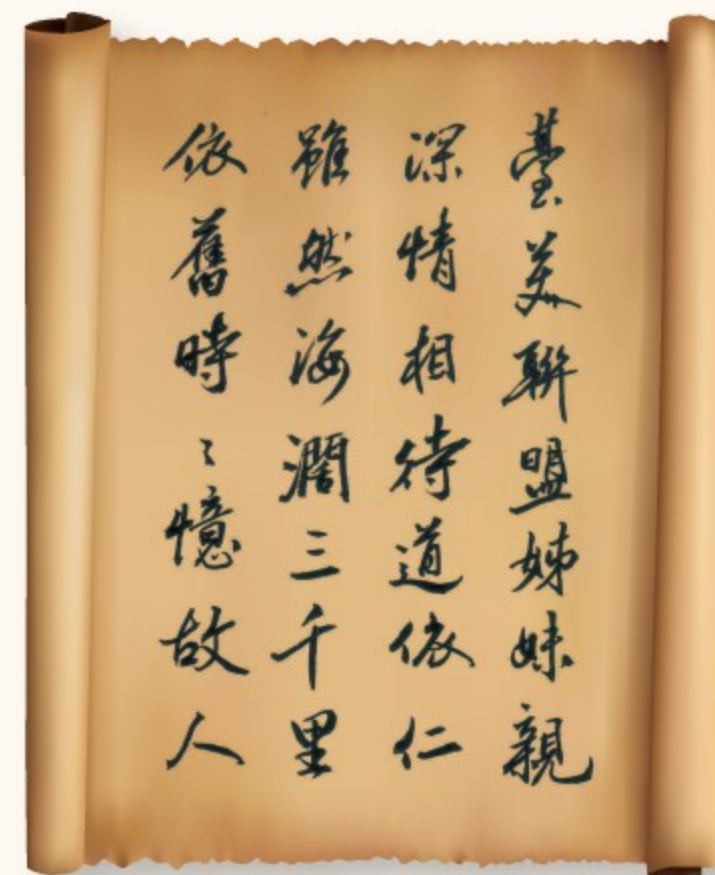 臺美聯盟姊妹親
深情相待道依仁
雖然海濶三千里
依舊時〻憶故人